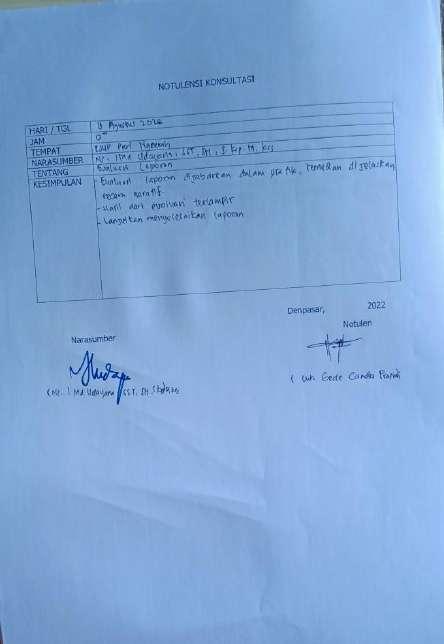 NOTULENSI KONSULTASI
HARI / TGL Agustus 2022
JAM
TEMPAT RSUP Prof
NARASUMBER Ns. I Md Udayana, SST.
TENTANG Evaluasi Laporan
KESIMPULAN - Evaluasi laporan dijabarkan dalam grafik, kemudian dijelaskan
secara naratif
- Hasil dari evaluasi terlampir
- Lanjutkan menyelesaikan laporan
Denpasar, 2022
Narasumber Notulen
(Ns. I Md Udayana SST.
( Luh Gede Candra